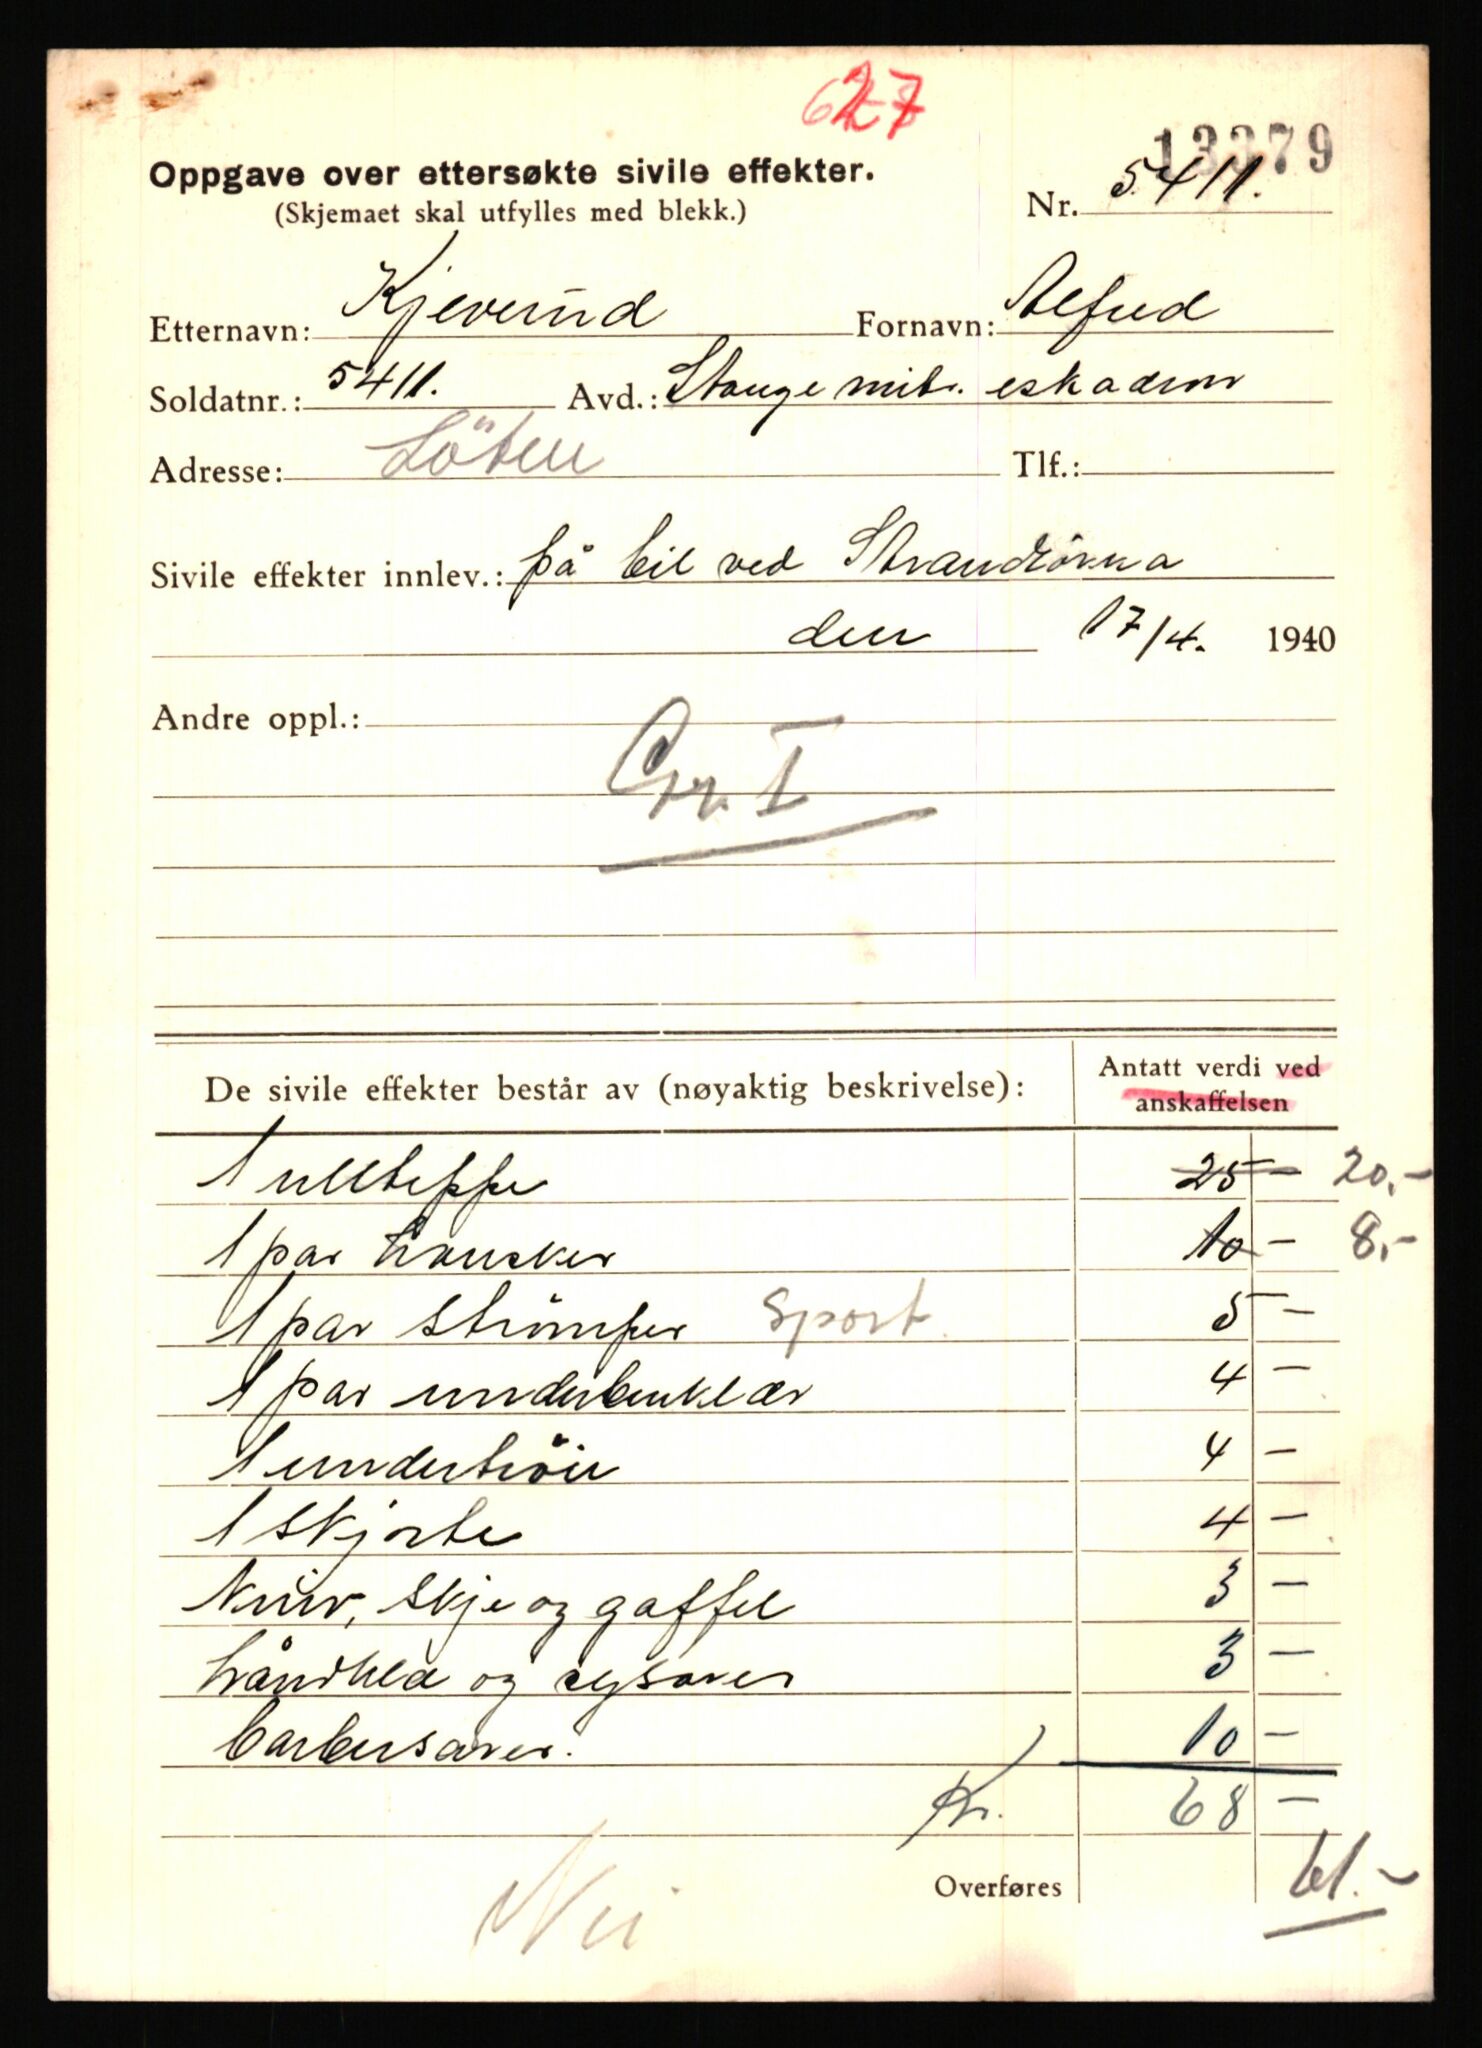 627
13379
Oppgave over ettersøkte sivile effekter.
(Skjemaet skal utfylles med blekk.)
Nr. 5411.
Etternavn: Kjeverud Fornavn: Alfred
Soldatnr.: 5411. Avd.: Stange mitr. eskadron
Adresse: Löten Tlf.:
Sivile effekter innlev.: på bil ved Strandlökka
den 17/4. 1940
Andre oppl.:
Gr. I
De sivile effekter består av (nøyaktig beskrivelse): Antatt verdi ved anskaffelsen
1 ullteppe 25 – 20,-
1 par hansker 10 – 8,-
1 par strömper Sport 5 –
1 par underbenklær 4 –
1 undertröie 4 –
1 skjorte 4 –
Kniv, skje og gaffel 3 –
håndklæ og sysaver 3 –
barbersaver. 10 –
Kr. 68 –
Overføres 61.-
Nei